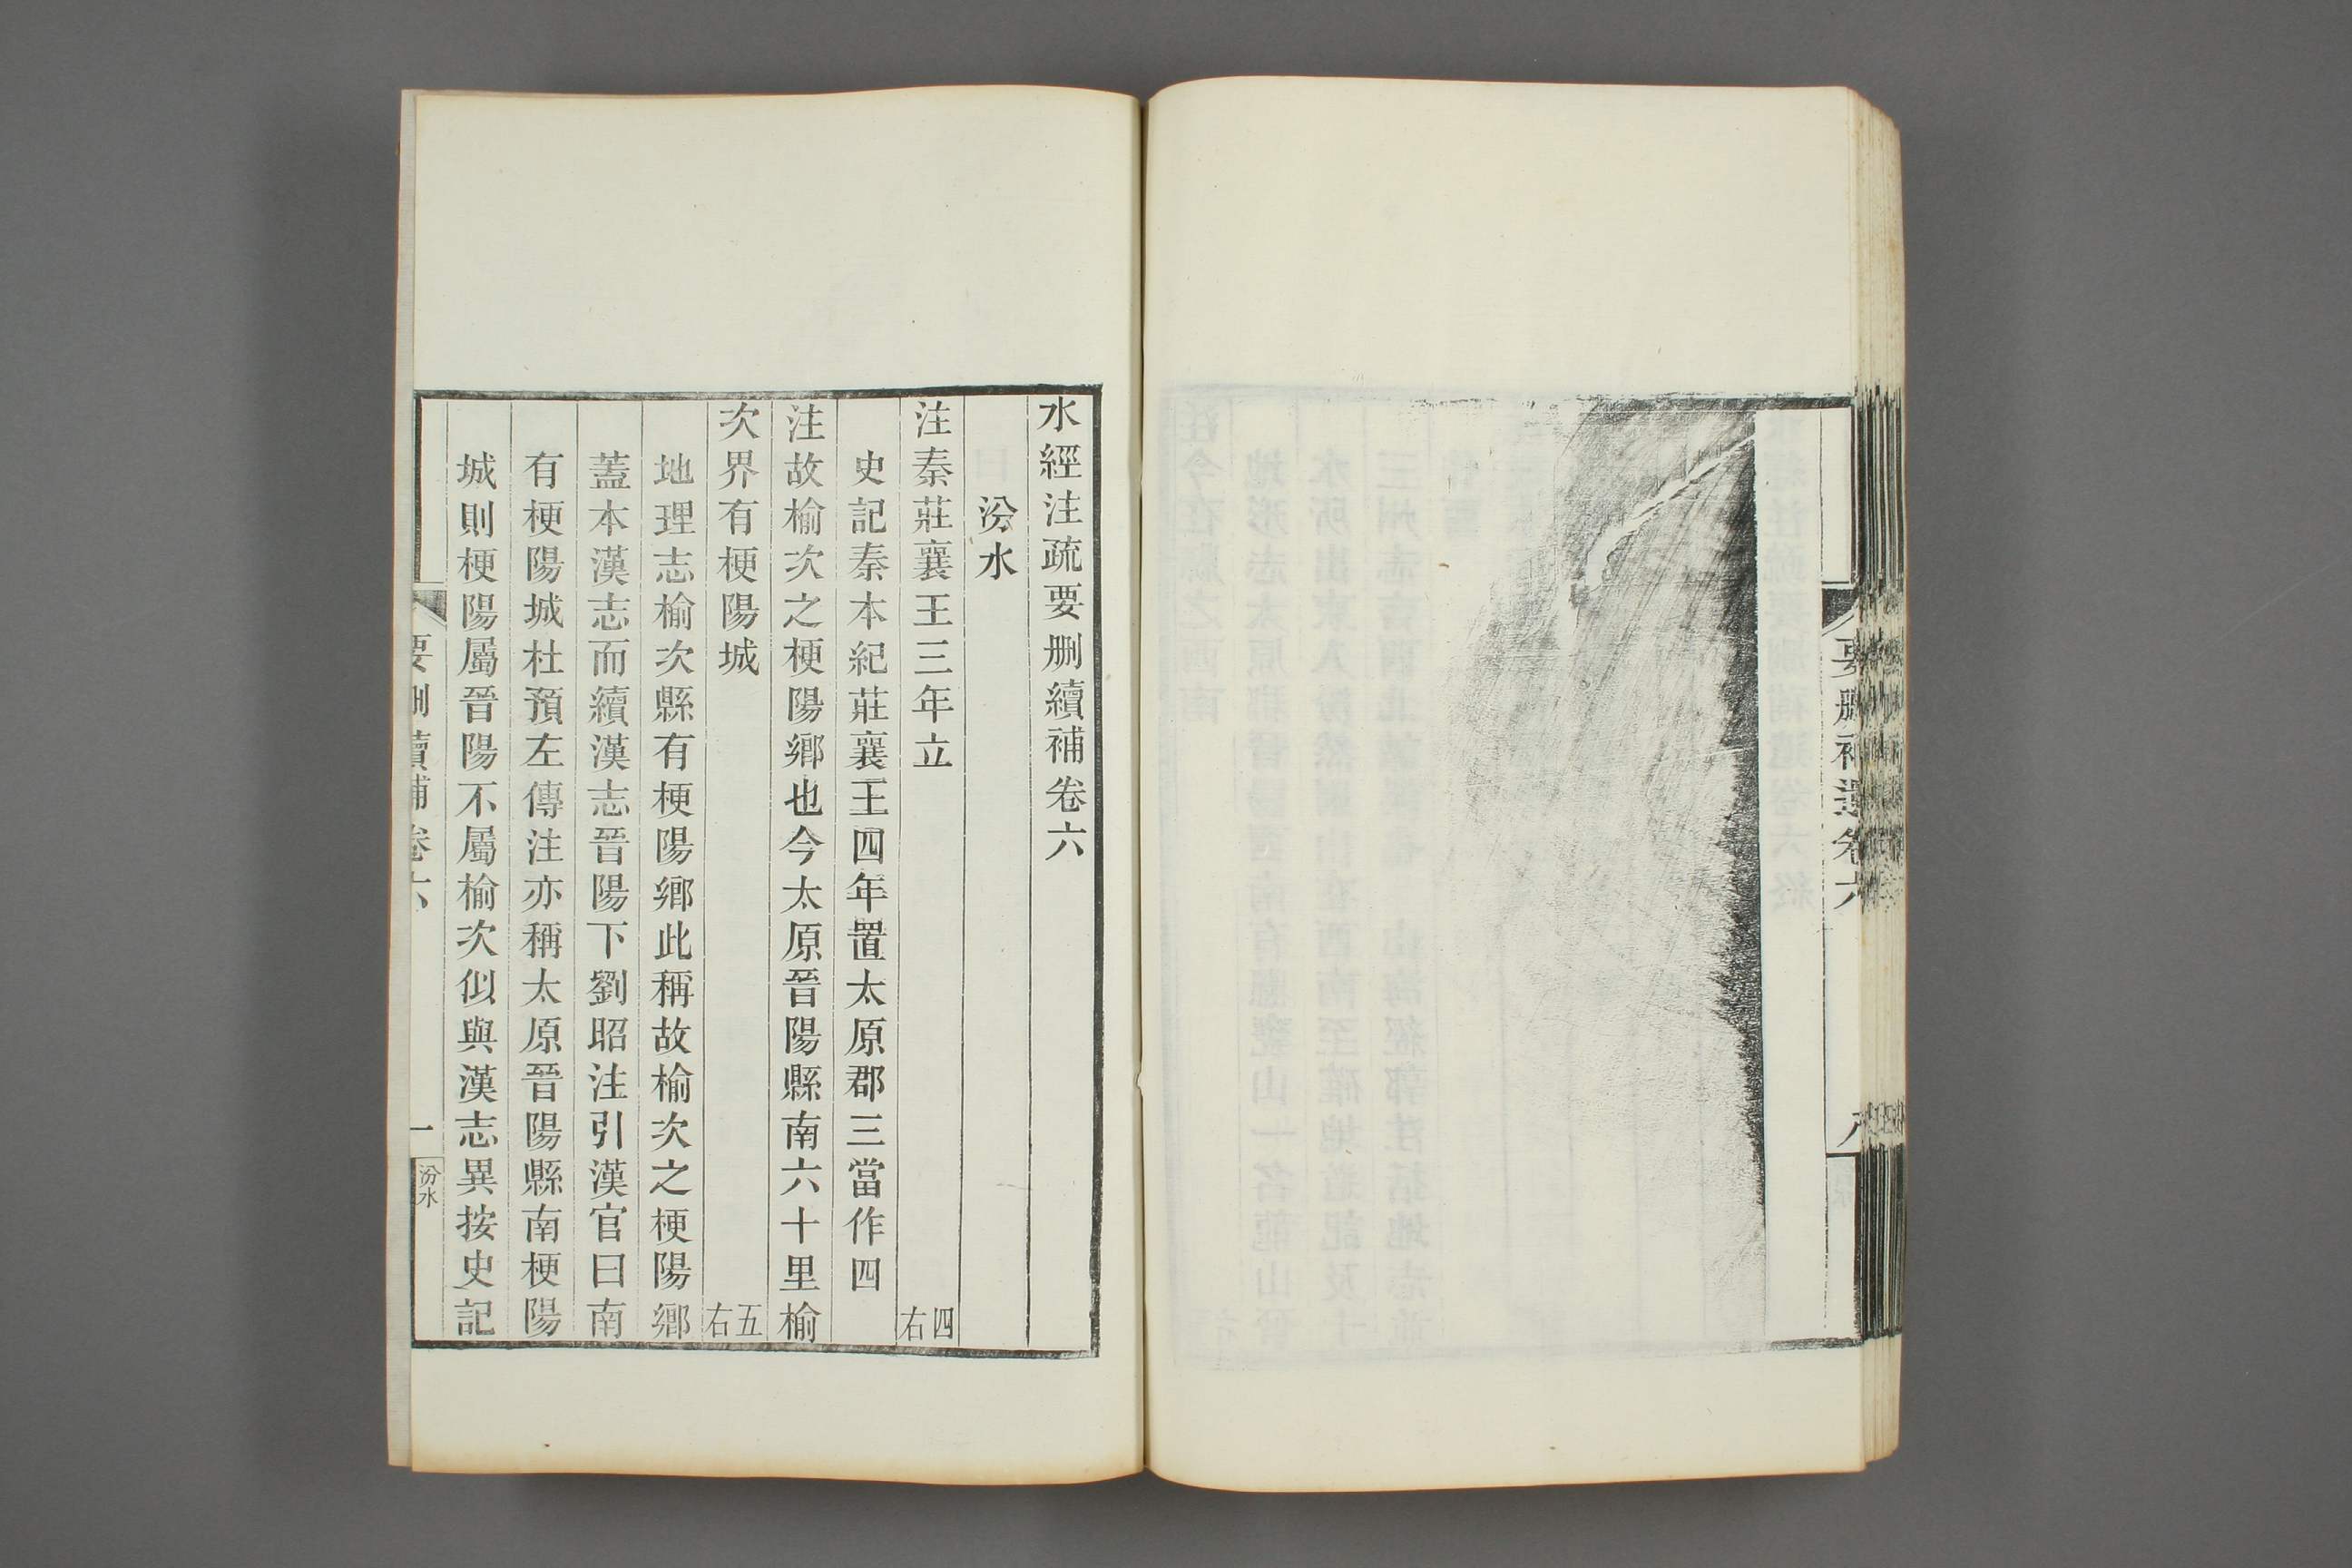 要刪補遺卷六
水經注疏要刪續補卷六
汾水
注秦莊襄王三年立 四右
史記秦本紀莊襄王四年置太原郡三當作四
注故榆次之梗陽鄉也今太原晉陽縣南六十里榆
次界有梗陽城 五右
地理志榆次縣有梗陽鄉此稱故榆次之梗陽鄉
蓋本漢志而續漢志晉陽下劉昭注引漢官曰南
有梗陽城杜預左傳注亦稱太原晉陽縣南梗陽
城則梗陽屬晉陽不屬榆次似與漢志異按史記
要刪續補卷六 一 汾水